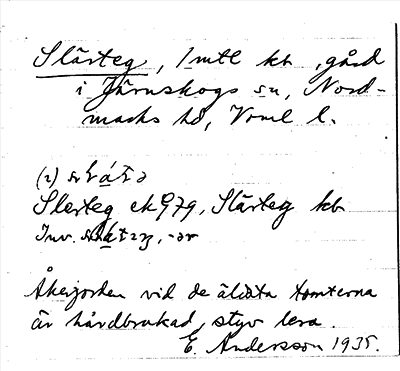 Slärteg, 1 mtl kb, gård
i Järnskogs sn, Nord-
marks hd, Vrml l.
(2)
Slerteg ek 979, Slärteg kb
Inv.
Åkerjorden vid de äldsta tomterna
är hårdbrukad, styv lera.
E. Andersson 1935.